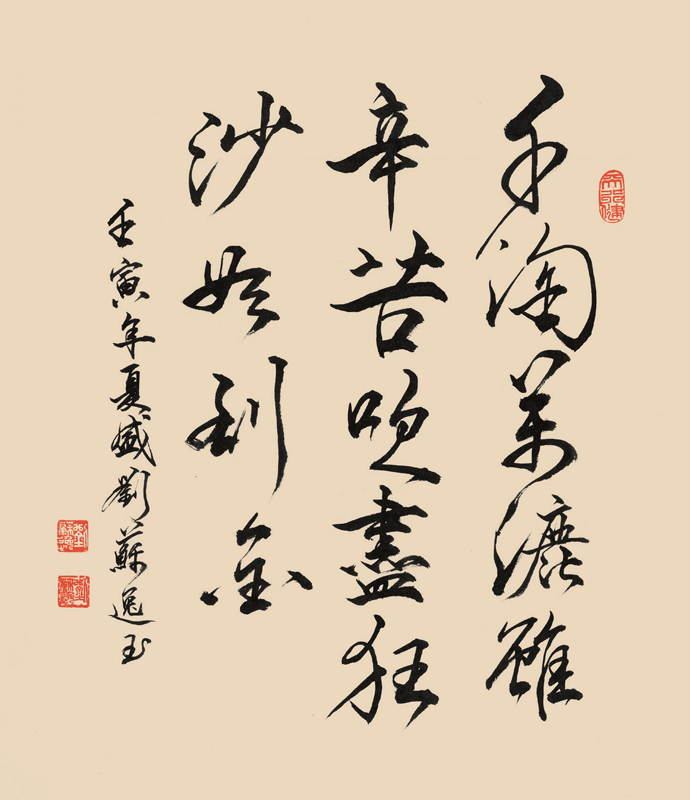 千淘萬漉雖
辛苦吹盡狂
沙始到金
壬寅年夏盛劉蘇逸玉
天行健